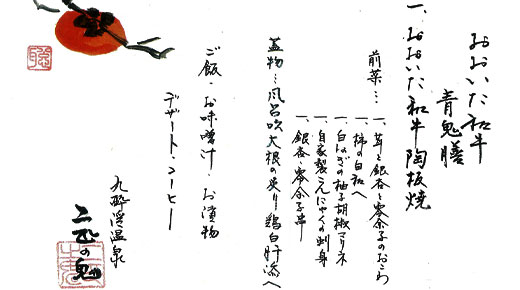 おおいた和牛
青鬼膳
一、おおいた和牛陶板焼
前菜…
一、茸と銀杏と零余子のおこわ
一、柿の白和へ
一、白ねぎの柚子胡椒マリネ
一、自家製こんにゃくの刺身
一、銀杏と零余子串
蓋物…風呂吹大根の炙り鶏白肝添へ
ご飯・お味噌汁・お漬物
デザート・コーヒー
九酔渓温泉
二匹の鬼